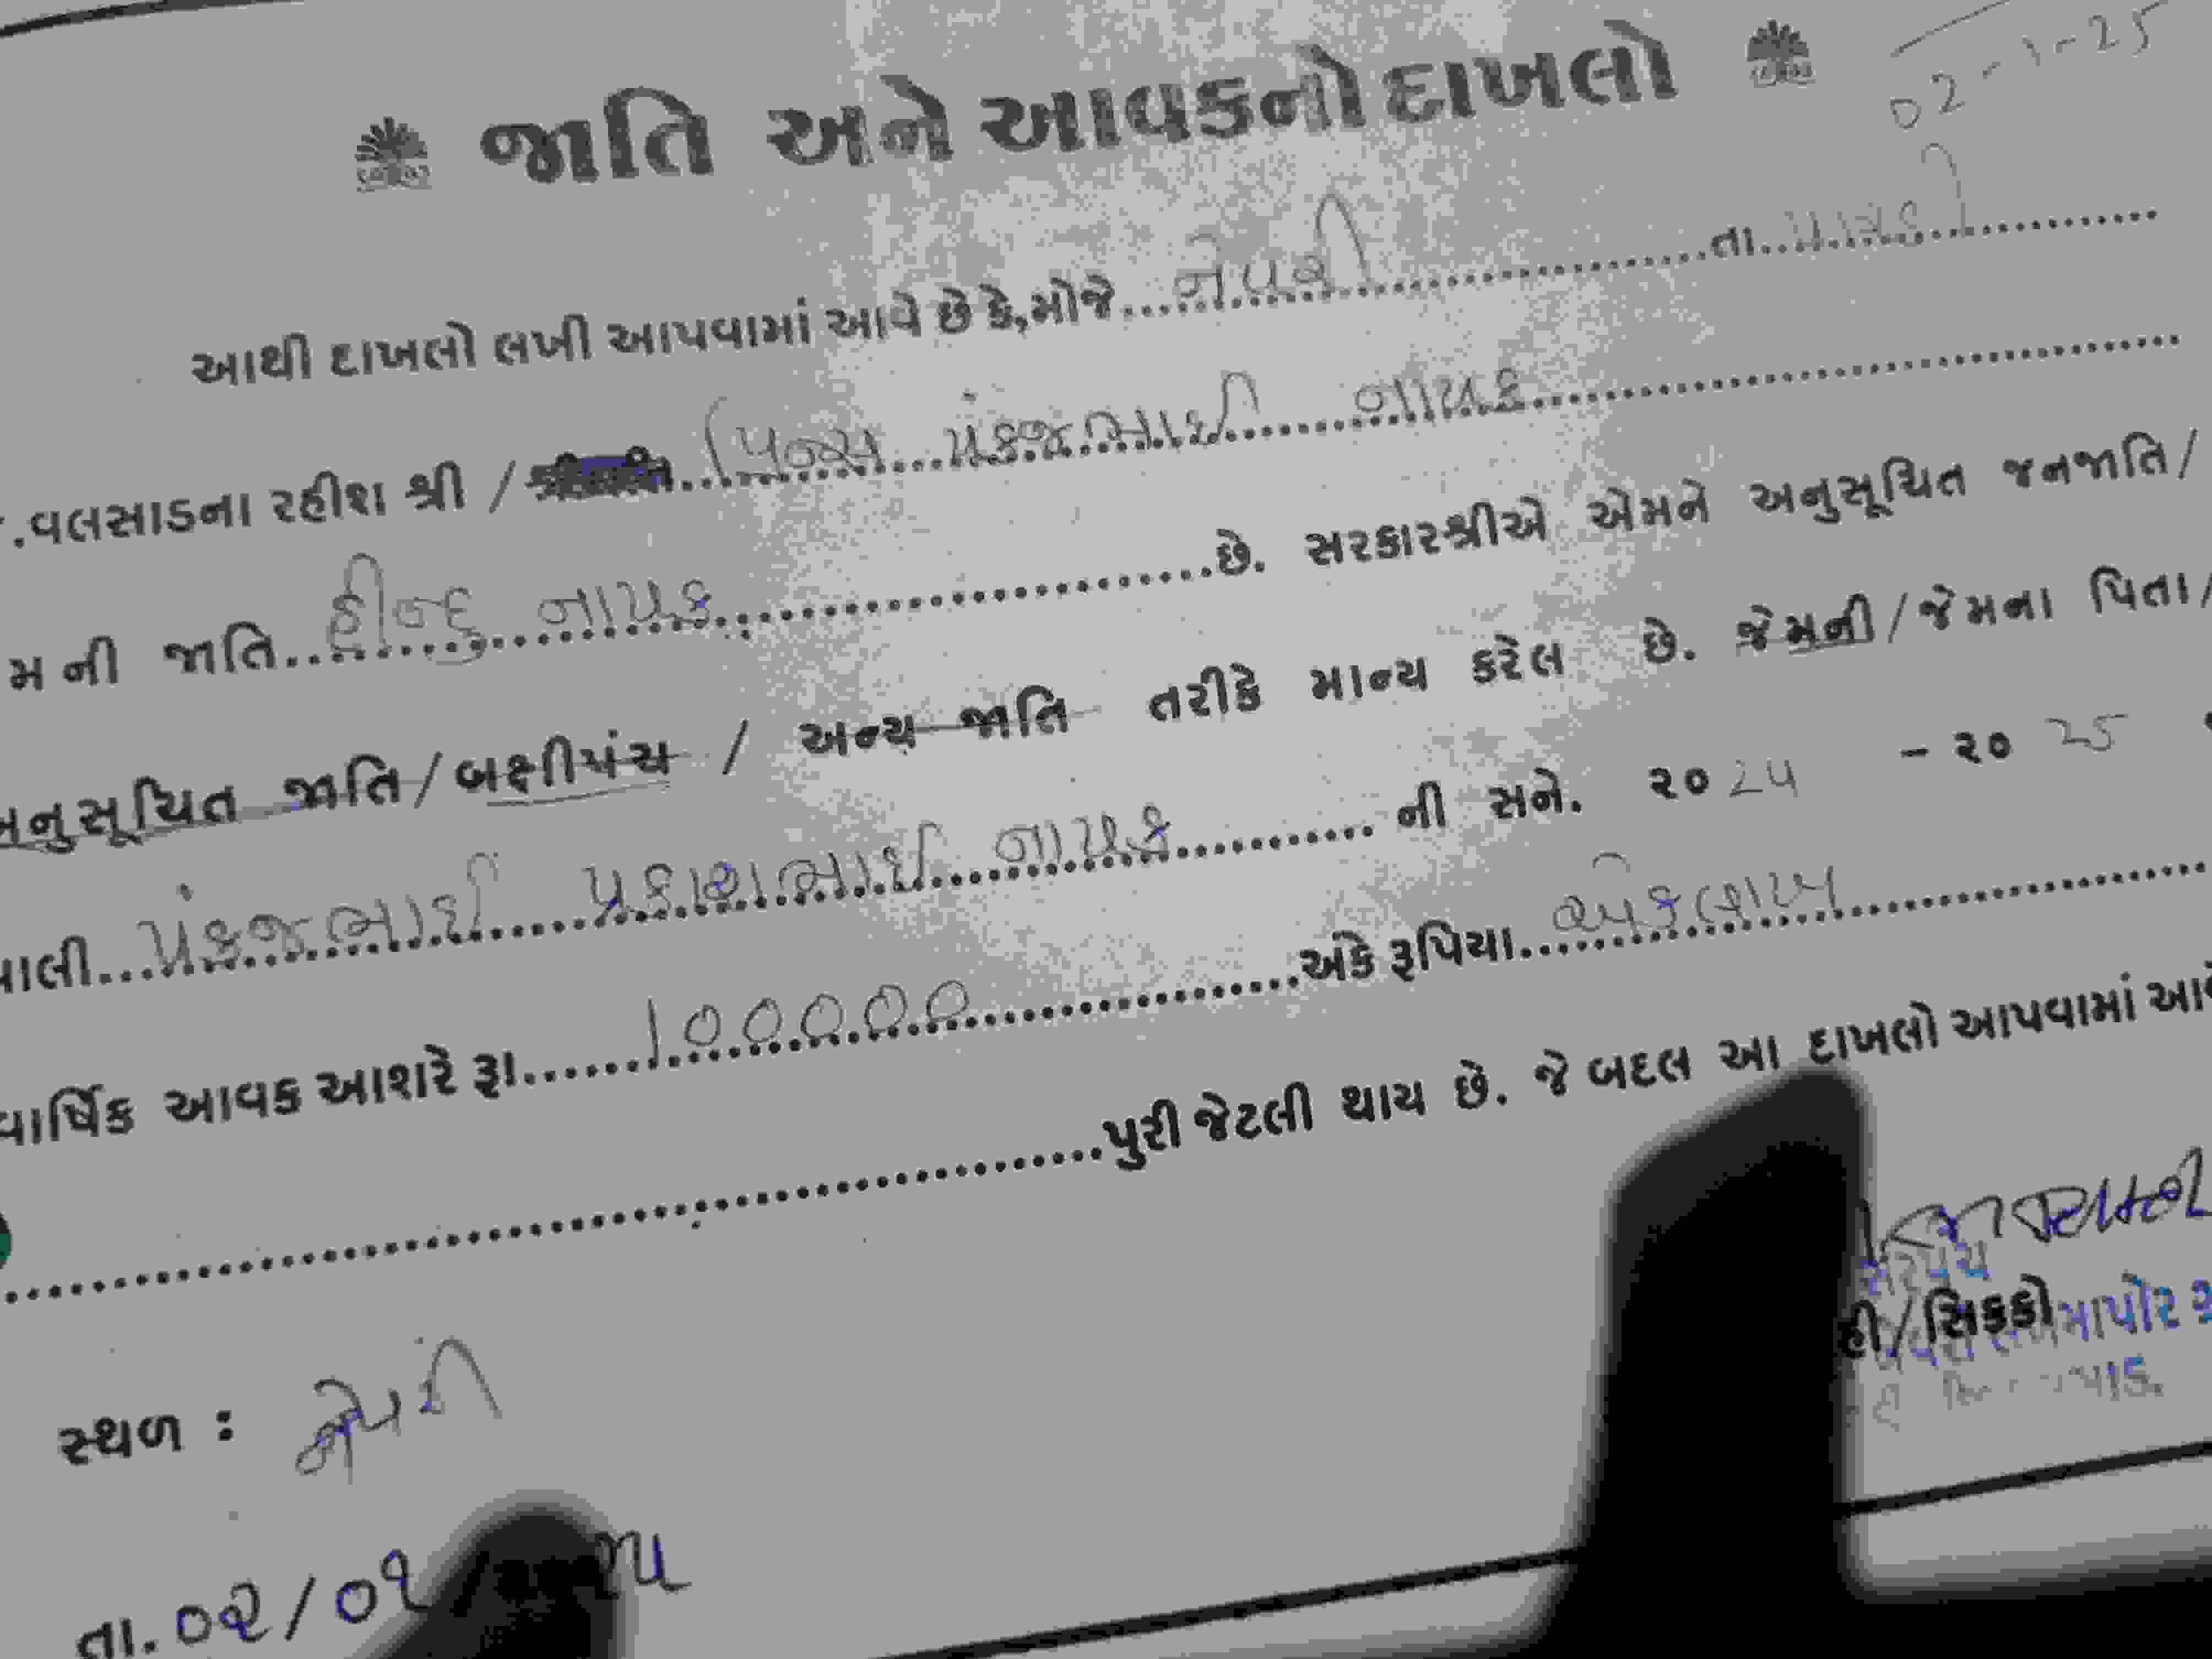 02-1-25
જાતિ અને આવકનો દાખલો
આથી દાખલો લખી આપવામાં આવે છે કે,મોજે નેવરી તા. પારડી
.વલસાડના રહીશ શ્રી / પંકજભાઈ નાયક
મની જાતિ હીન્દુ નાયક છે. સરકારશ્રીએ એમને અનુસૂચિત જનજાતિ/
અનુસૂચિત જાતિ/બક્ષીપંચ / અન્ય જાતિ તરીકે માન્ય કરેલ છે. જેમની/જેમના પિતા/
વાલી પંકજભાઈ પ્રકાશભાઈ નાયક ની સને. ૨૦24 - ૨૦25
વાર્ષિક આવક આશરે રૂા. 100000 અંકે રૂપિયા એકલાખ
પુરી જેટલી થાય છે. જે બદલ આ દાખલો આપવામાં આવે
સરપંચ
હી/સિક્કો
સ્થળ : નેવરી
તા.૦૨/૦૧